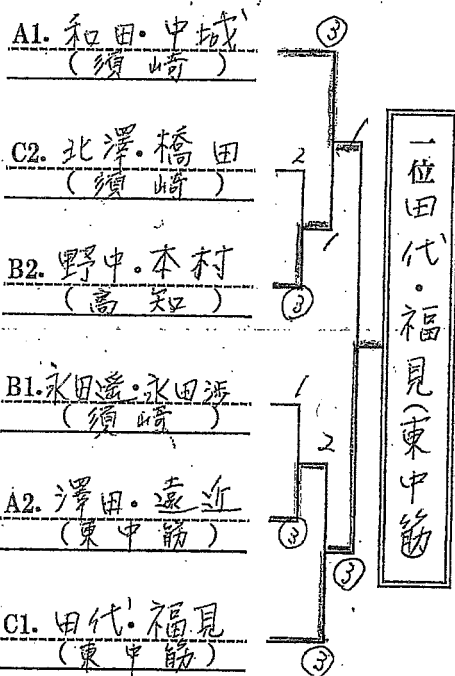 A1. 和田・中城
(須崎)
③
C2. 北澤・橋田
(須崎)
2
1
B2. 野中・本村
(高知)
③
1
B1. 永田遥・永田渉
(須崎)
1
2
A2. 澤田・遠近
(東中筋)
③
③
C1. 田代・福見
(東中筋)
③
一位田代・福見(東中筋